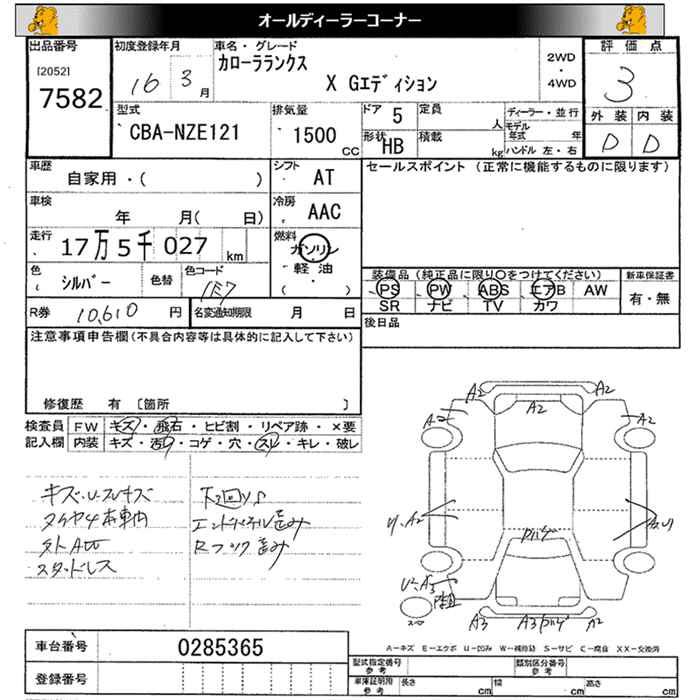 オールディーラーコーナー
出品番号
[2052]
7582
初度登録年月
16年3月
車名・グレード
カローラランクス
X Gエディション
2WD
・
4WD
評価点
3
外装 内装
D D
型式
CBA-NZE121
排気量
1500 CC
ドア 5
形状 HB
定員 人
積載 kg
ディーラー・並行
モデル年式 年
ハンドル 左・右
車歴
自家用・( )
シフト
AT
セールスポイント (正常に機能するものに限ります)
車検
年 月( 日)
冷房
AAC
走行
17万5千027 km
燃料
ガソリン
・軽油・
( )
色
シルバー
色替
色コード
1E7
装備品(純正品に限り○をつけてください)
PS PW ABS エアB AW
SR ナビ TV カワ
新車保証書
有・無
R券 10,610 円
名変通知期限 月 日
後日品
注意事項申告欄(不具合内容等は具体的に記入して下さい)
修復歴 有 〔箇所 〕
検査員記入欄
FW キズ・飛石・ヒビ割・リペア跡・×要
内装 キズ・汚れ・コゲ・穴・スレ・キレ・破レ
キズ・U・スレキズ
タイヤ4本車内
外AW
スタッドレス
下回りS
エンドパネル歪み
Rフック歪み
A2
A2
A2
A2
A2
U・A2
A3
A2
A-キズ E-エクボ U-凹み W-補修跡 S-サビ C-腐食 XX-交換済
車台番号 0285365
登録番号
型式指定番号 参考
類別区分番号 参考
車庫証明用 参考
長さ cm 幅 cm 高さ cm